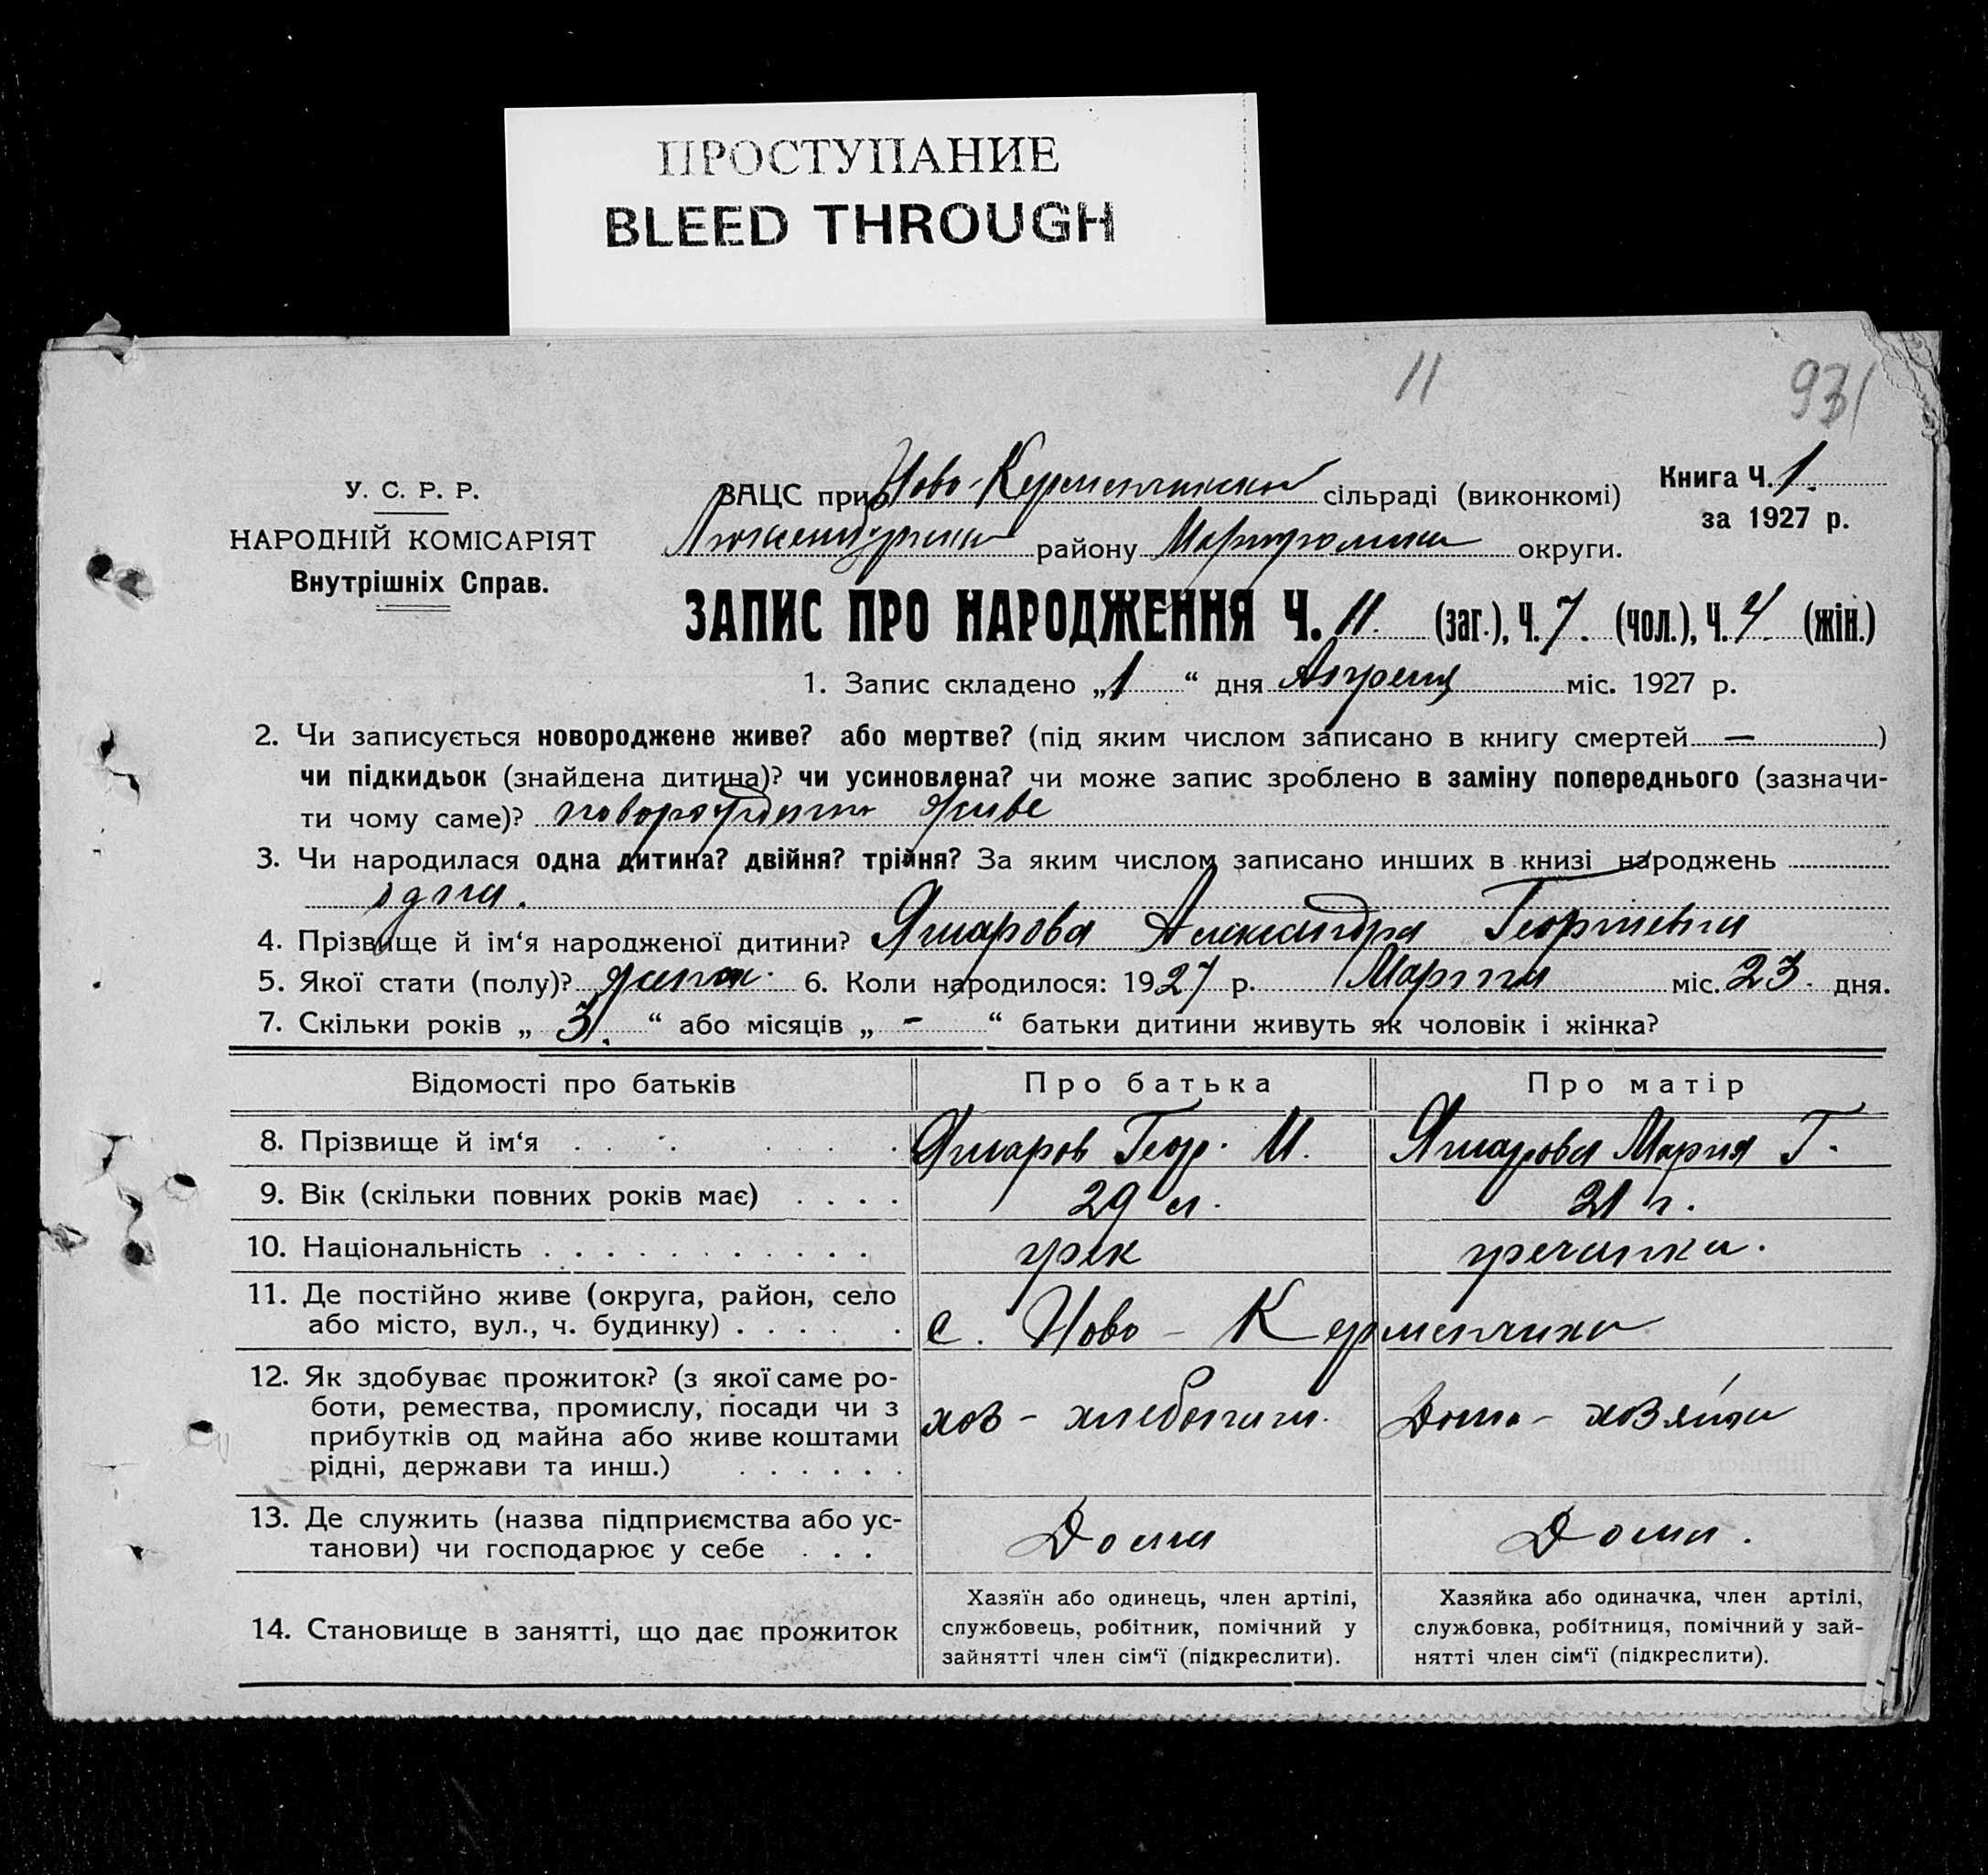 ПРОСТУПАНИЕ
BLEED THROUGH
11
931
У. С. Р. Р.
НАРОДНІЙ КОМІСАРІЯТ
Внутрішніх Справ.
ЗАЦС при Ново-Керменчикской сільраді (виконкомі)
Книга Ч. 1.
за 1927 р.
району Мариупольской округи.
ЗАПИС ПРО НАРОДЖЕННЯ Ч. 11. (заг.), Ч. 7. (чол.), Ч. 4. (жін.)
1. Запис складено „1“ дня Апреля міс. 1927 р.
2. Чи записується новороджене живе? або мертве? (під яким числом записано в книгу смертей — )
чи підкидьок (знайдена дитина)? чи усиновлена? чи може запис зроблено в заміну попереднього (зазначи-
ти чому саме)? живе
3. Чи народилася одна дитина? двійня? трійня? За яким числом записано инших в книзі народжень
одна.
4. Прізвище й ім‘я народженої дитини? Ялиарова Александра Георгиевна
5. Якої стати (полу)? женск. 6. Коли народилося: 1927 р. Марта міс. 23. дня.
7. Скільки років „ 3. “ або місяців „ - “ батьки дитини живуть як чоловік і жінка?
Відомості про батьків Про батька Про матір
8. Прізвище й ім‘я Геор. И. Мария Г.
9. Вік (скільки повних років має) 29 л. 21 г.
10. Національність грек гречанка.
11. Де постійно живе (округа, район, село
або місто, вул., ч. будинку) с. Ново-Керменчика
12. Як здобуває прожиток? (з якої саме ро-
боти, ремества, промислу, посади чи з
прибутків од майна або живе коштами
рідні, держави та инш.) хоз - Дома - хозяйка
13. Де служить (назва підприємства або ус-
танови) чи господарює у себе Дома Дома.
14. Становище в занятті, що дає прожиток
Хазяїн або одинець, член артілі,
службовець, робітник, помічний у
зайнятті член сім‘ї (підкреслити).
Хазяйка або одиначка, член артілі,
службовка, робітниця, помічний у зай-
нятті член сім‘ї (підкреслити).